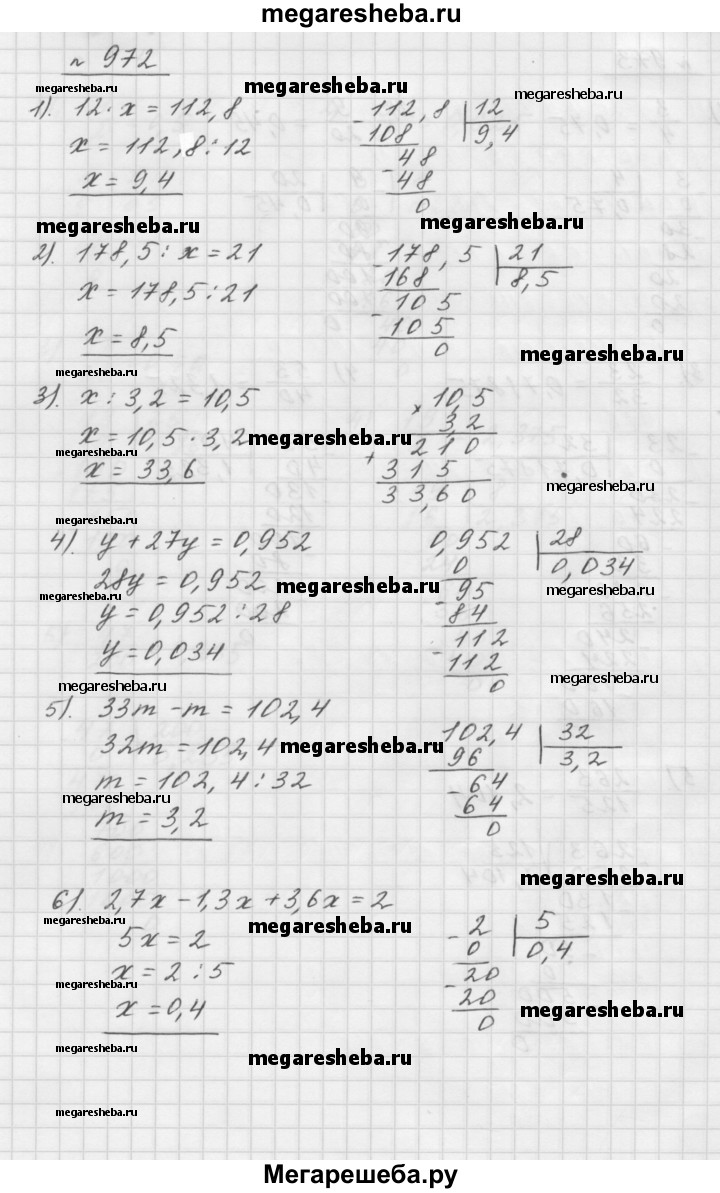 megaresheba.ru
№ 972
megaresheba.ru megaresheba.ru megaresheba.ru
1). 12 · x = 112,8
x = 112,8 : 12
x = 9,4
- 112,8 | 12
108 | 9,4
48
- 48
0
megaresheba.ru megaresheba.ru
2). 178,5 : x = 21
x = 178,5 : 21
x = 8,5
- 178,5 | 21
168 | 8,5
- 105
105
0
megaresheba.ru megaresheba.ru
3). x : 3,2 = 10,5
x = 10,5 · 3,2 megaresheba.ru
megaresheba.ru
x = 33,6
× 10,5
3,2
+ 210
315
33,60
megaresheba.ru
megaresheba.ru
4). y + 27y = 0,952
28y = 0,952 megaresheba.ru
megaresheba.ru
y = 0,952 : 28
y = 0,034
0,952 | 28
0 | 0,034
- 95
84
- 112
112
0
megaresheba.ru
megaresheba.ru megaresheba.ru
5). 33m - m = 102,4
32m = 102,4 megaresheba.ru
m = 102,4 : 32
megaresheba.ru
m = 3,2
102,4 | 32
96 | 3,2
- 64
64
0
megaresheba.ru
6). 2,7x - 1,3x + 3,6x = 2
megaresheba.ru megaresheba.ru
5x = 2
x = 2 : 5
x = 0,4
- 2 | 5
0 | 0,4
- 20
20
0
megaresheba.ru megaresheba.ru
megaresheba.ru megaresheba.ru
megaresheba.ru
Мегарешеба.ру